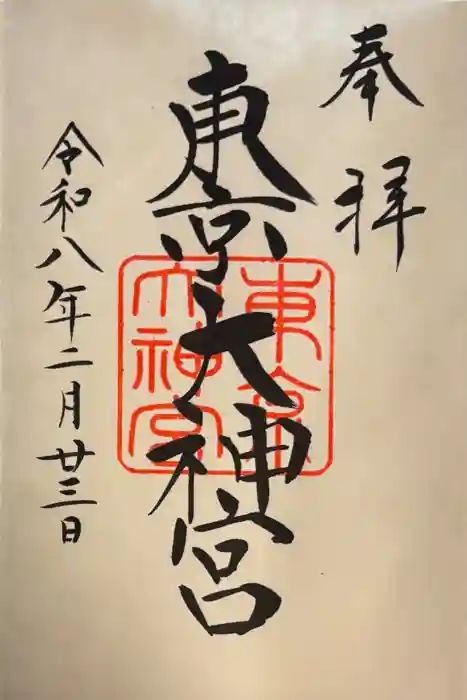 奉拝
東京大神宮
東京
大神宮
令和八年二月廿三日